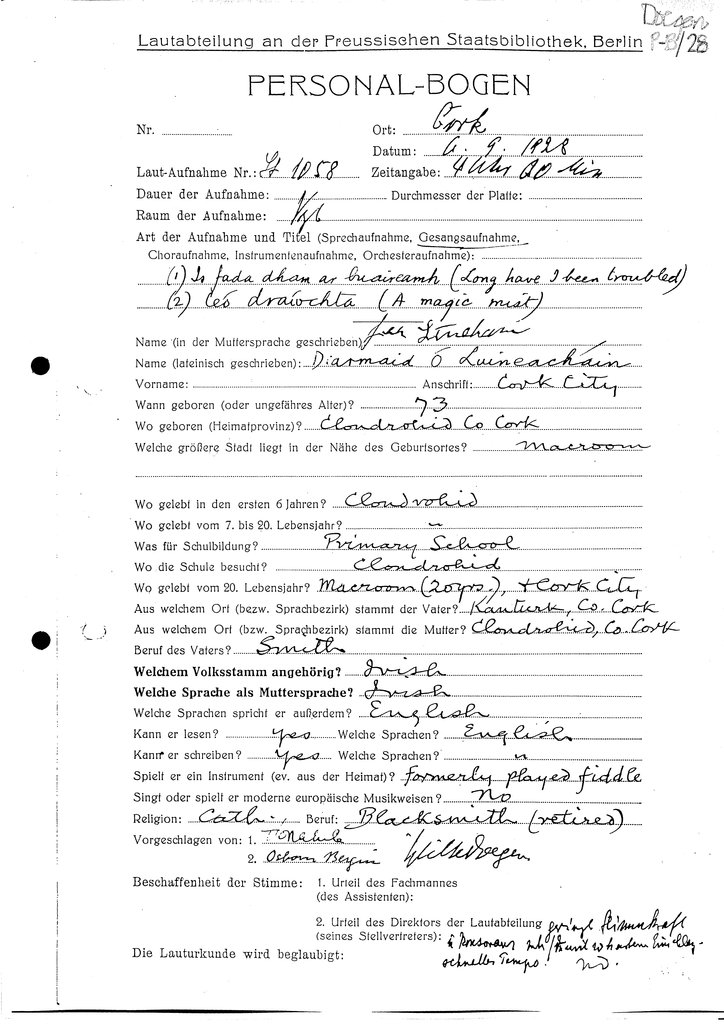 Doegen
P-B/28
Lautabteilung an der Preussischen Staatsbibliothek, Berlin
PERSONAL-BOGEN
Nr. Ort: Cork
Datum: 6. 9. 1928
Laut-Aufnahme Nr.: 1058 Zeitangabe: 4 Uhr Min
Dauer der Aufnahme: Durchmesser der Platte:
Raum der Aufnahme:
Art der Aufnahme und Titel (Sprechaufnahme, Gesangsaufnahme,
Choraufnahme, Instrumentenaufnahme, Orchesteraufnahme):
(1) Is fada dham ar buaireamh (Long have I been troubled)
(2) Ceó draíochta (A magic mist)
Name (in der Muttersprache geschrieben) Jer Lineham
Name (lateinisch geschrieben): Diarmaid Ó Luineacháin
Vorname: Anschrift: Cork City
Wann geboren (oder ungefähres Alter)? 73
Wo geboren (Heimatprovinz)? Clondrohid Co Cork
Welche größere Stadt liegt in der Nähe des Geburtsortes? Macroom
Wo gelebt in den ersten 6 Jahren? Clondrohid
Wo gelebt vom 7. bis 20. Lebensjahr? "
Was für Schulbildung? Primary School
Wo die Schule besucht? Clondrohid
Wo gelebt vom 20. Lebensjahr? Macroom (20 yrs.), + Cork City
Aus welchem Ort (bezw. Sprachbezirk) stammt der Vater? Kanturk, Co. Cork
Aus welchem Ort (bezw. Sprachbezirk) stammt die Mutter? Clondrohid, Co. Cork
Beruf des Vaters? Smith
Welchem Volksstamm angehörig? Irish
Welche Sprache als Muttersprache? Irish
Welche Sprachen spricht er außerdem? English
Kann er lesen? yes Welche Sprachen? English
Kann er schreiben? yes Welche Sprachen? "
Spielt er ein Instrument (ev. aus der Heimat)? formerly played fiddle
Singt oder spielt er moderne europäische Musikweisen? No
Religion: Cath. Beruf: Blacksmith (retired)
Vorgeschlagen von: 1.
2. Osborn Bergin Wilh Doegen
Beschaffenheit der Stimme: 1. Urteil des Fachmannes
(des Assistenten):
2. Urteil des Direktors der Lautabteilung geringe Stimmkraft
(seines Stellvertreters):
schnelles Tempo!
Die Lauturkunde wird beglaubigt: